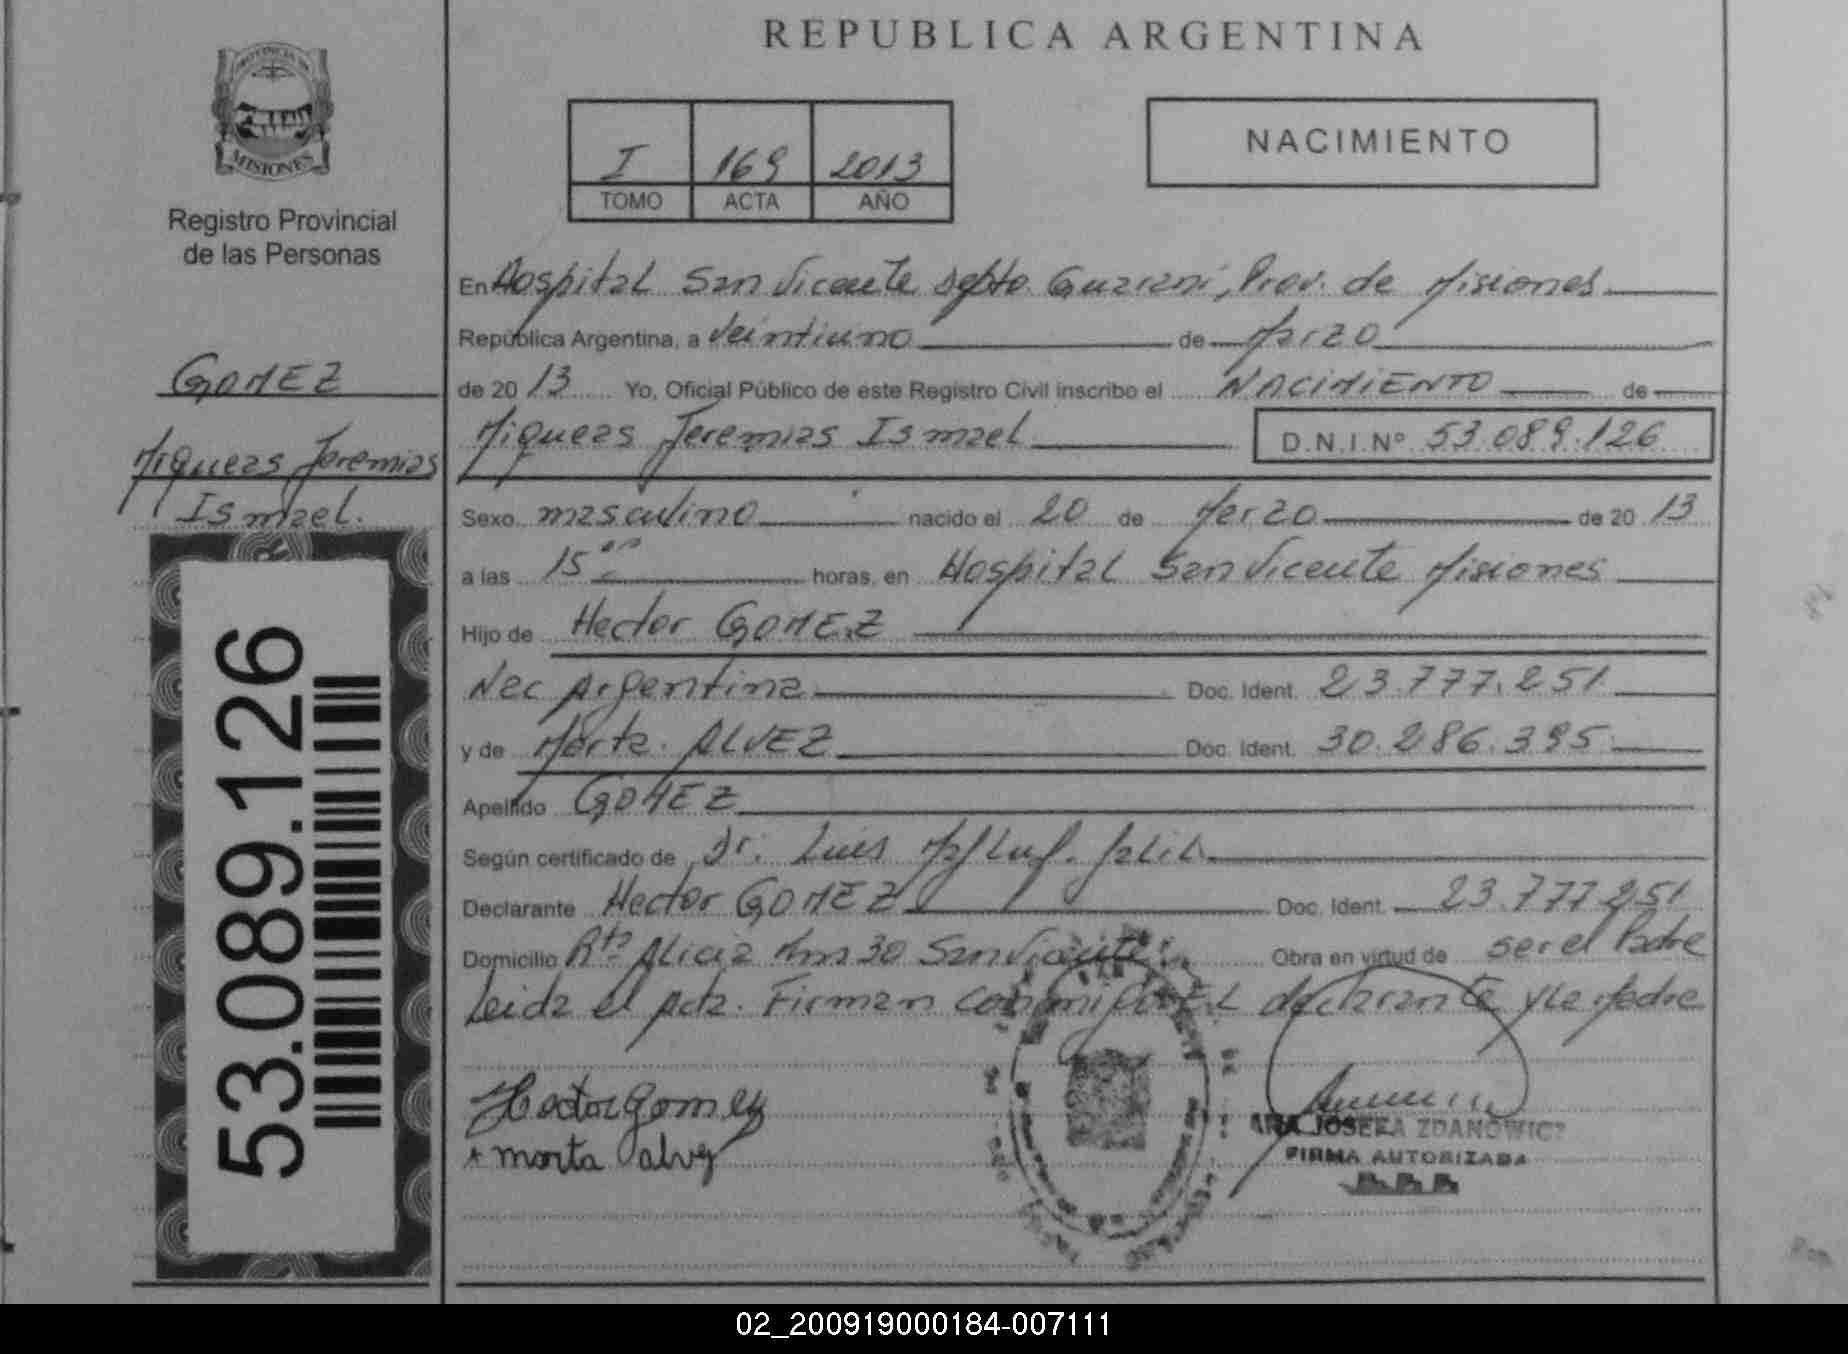 REPUBLICA ARGENTINA
PROVINCIA DE
MISIONES
Registro Provincial
de las Personas
I 169 2013
TOMO ACTA AÑO
NACIMIENTO
GOMEZ
Miqueas Jeremias
Ismael.
53.089.126
En Hospital San Vicente Dpto. Guarani, Prov. de Misiones
República Argentina, a Veintiuno de Marzo
de 20 13 Yo, Oficial Público de este Registro Civil inscribo el NACIMIENTO de
Miqueas Jeremias Ismael D.N.I.Nº 53.089.126
Sexo masculino nacido el 20 de Marzo de 20 13
a las 15 horas, en Hospital San Vicente Misiones
Hijo de Hector GOMEZ
Nac Argentina Doc. Ident. 23.777.251
y de Marta ALVEZ Doc. Ident. 30.286.395
Apellido GOMEZ
Según certificado de Dr. Luis
Declarante Hector GOMEZ Doc. Ident. 23.777.251
Domicilio Rta Alicia Km 30 San Vicente Obra en virtud de ser el Padre
Leida el Acta. Firman conmigo EL declarante y la Madre
Hector Gomez
marta alvez
JOSEFA ZDANOWICZ
FIRMA AUTORIZADA
02_200919000184-007111